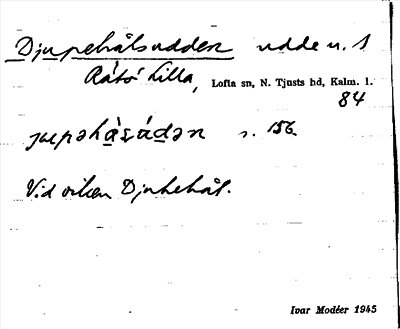 Djupehålsudden udde n. 1
Råtö Lilla, Lofta sn, N. Tjusts hd, Kalm. l.
84
s. 156.
Vid viken Djupehål.
Ivar Modéer 1945